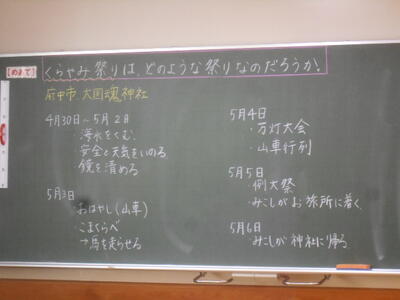 【めあて】
くらやみ祭りは、どのような祭りなのだろうか。
府中市 大国魂神社
4月30日~5月2日
・海水をくむ。
・安全と天気をいのる
・鏡を清める
5月3日
・おはやし(山車)
・こまくらべ
→馬を走らせる
5月4日
・万灯大会
・山車行列
5月5日
・例大祭
・みこしがお旅所に着く。
5月6日
・みこしが神社に帰る